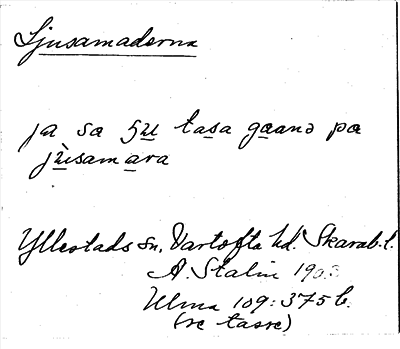 Ljusamaderna
ja sa ʒu tasa gaanə pa
jùsamara
Yllestads sn, Vartofta hd. Skarab.l.
A. Stalin 190
Ulma 109:375 b.
(se tasse)